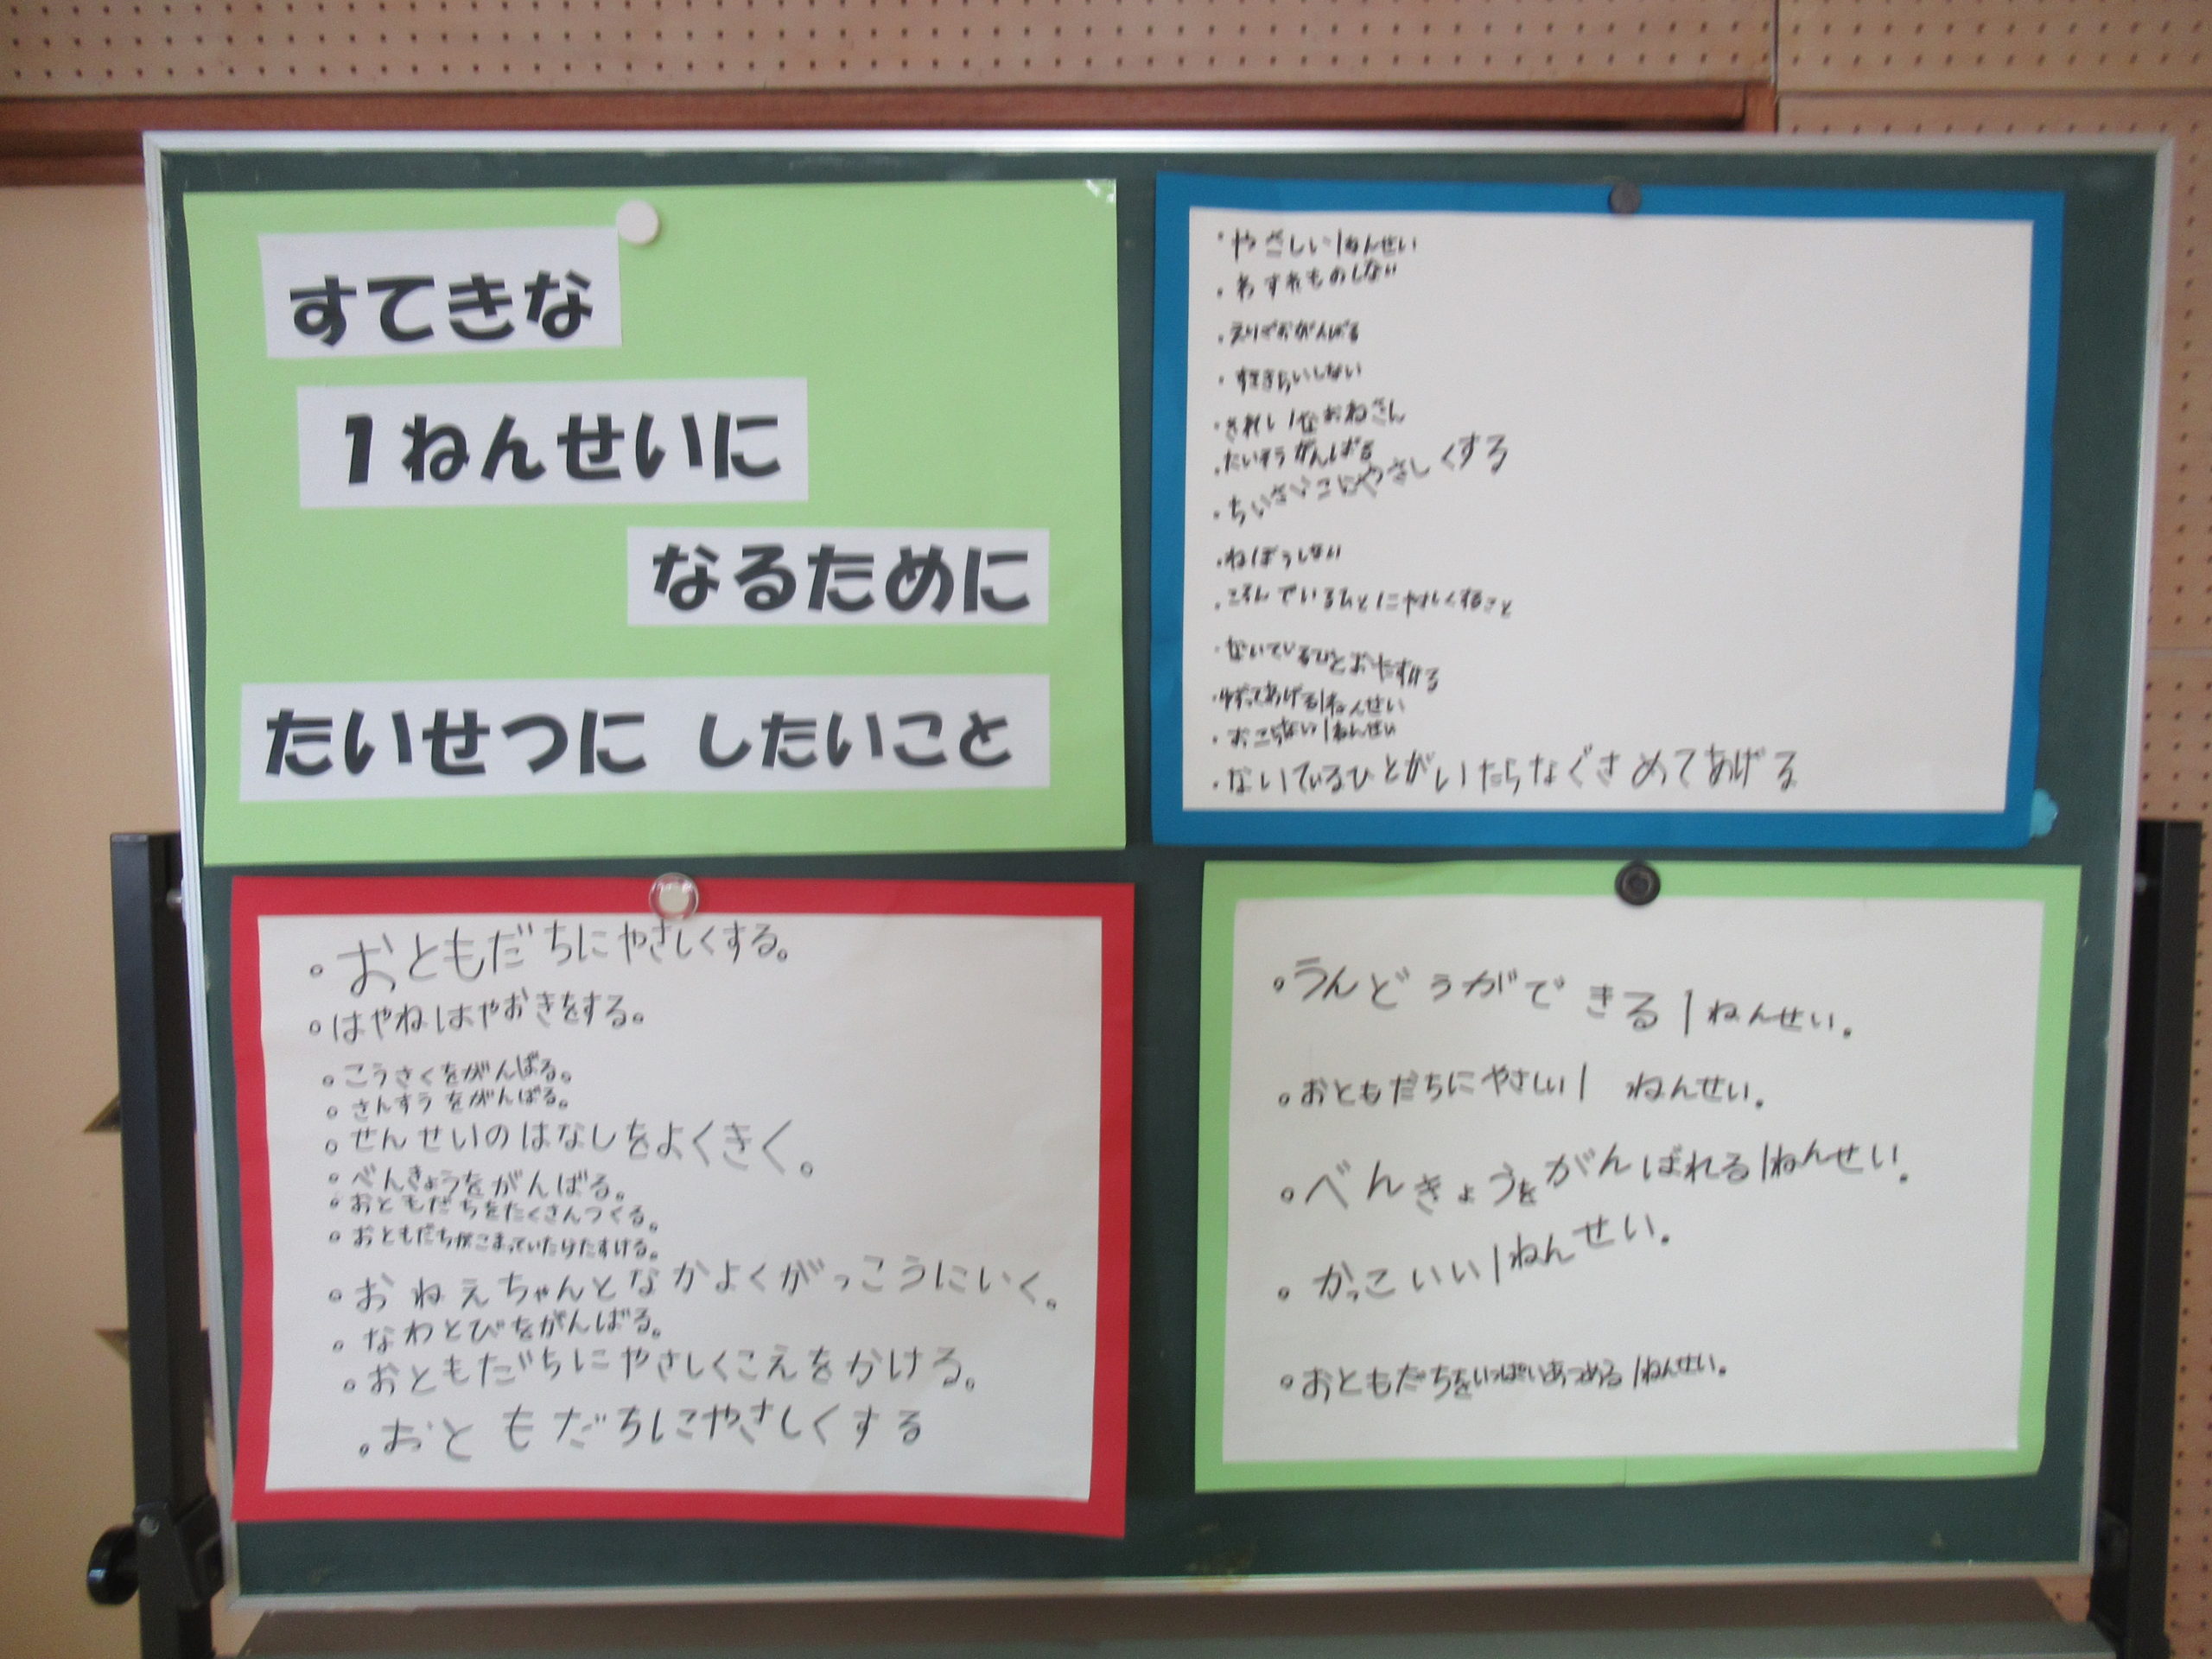 すてきな
1ねんせいに
なるために
たいせつに したいこと
・やさしい1ねんせい
・わすれものしない
・すききらいしない
・たいそうがんばる
・ちいさいこにやさしくする
・ねぼうしない
・ころんでいるひとにやさしくすること
・ないているひとおたすける
・ゆずってあげる1ねんせい
・おこらない1ねんせい
・ないているひとがいたらなぐさめてあげる
。おともだちにやさしくする。
。はやねはやおきをする。
。こうさくをがんばる。
。さんすうをがんばる。
。せんせいのはなしをよくきく。
。べんきょうをがんばる。
。おともだちをたくさんつくる。
。おともだちがこまっていたらたすける。
。おねえちゃんとなかよくがっこうにいく。
。なわとびをがんばる。
。おともだちにやさしくこえをかける。
。おともだちにやさしくする
。うんどうができる1ねんせい。
。おともだちにやさしい1ねんせい。
。べんきょうをがんばれる1ねんせい。
。かっこいい1ねんせい。
。おともだちをいっぱいあつめる1ねんせい。